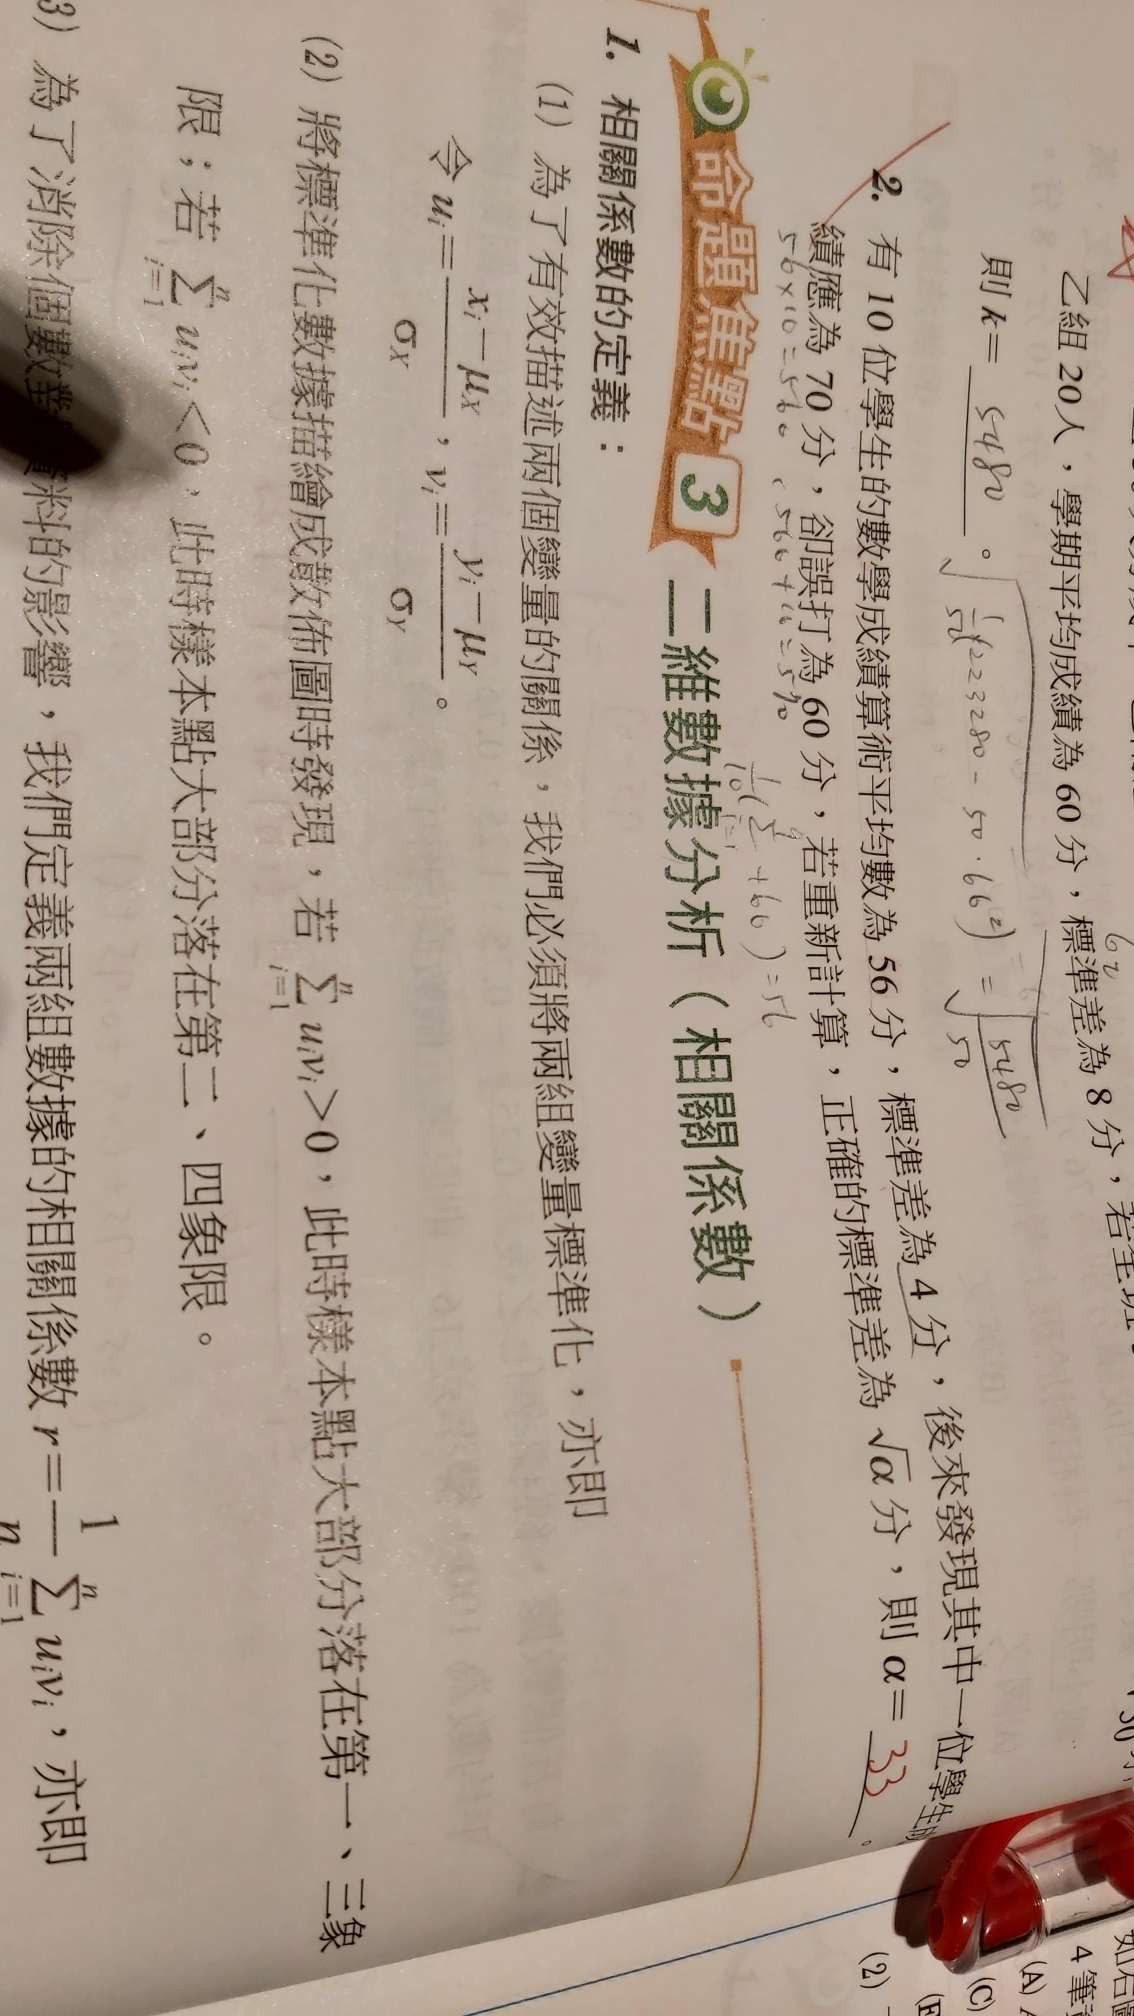 乙組 20人，學期平均成績為 60 分，標準差為 8 分，若全班
62
則 k= 5480 。
√1/50(223280－50·66²) = √5480/50
2. 有 10 位學生的數學成績算術平均數為 56 分，標準差為 4 分，後來發現其中一位學生的
績應為 70 分，卻誤打為 60 分，若重新計算，正確的標準差為 √α 分，則 α= 33 。
56×10=560
命題焦點 3 二維數據分析（相關係數）
1. 相關係數的定義：
(1) 為了有效描述兩個變量的關係，我們必須將兩組變量標準化，亦即
令 uᵢ=(xᵢ－μX)/σX，vᵢ=(yᵢ－μY)/σY。
(2) 將標準化數據描繪成散佈圖時發現，若 Σ(i=1→n) uᵢvᵢ>0，此時樣本點大部分落在第一、三象
限；若 Σ(i=1→n) uᵢvᵢ<0，此時樣本點大部分落在第二、四象限。
3) 為了消除個數對資料的影響，我們定義兩組數據的相關係數 r=1/n Σ(i=1→n) uᵢvᵢ，亦即
4 筆
(A)
(C)
(2)